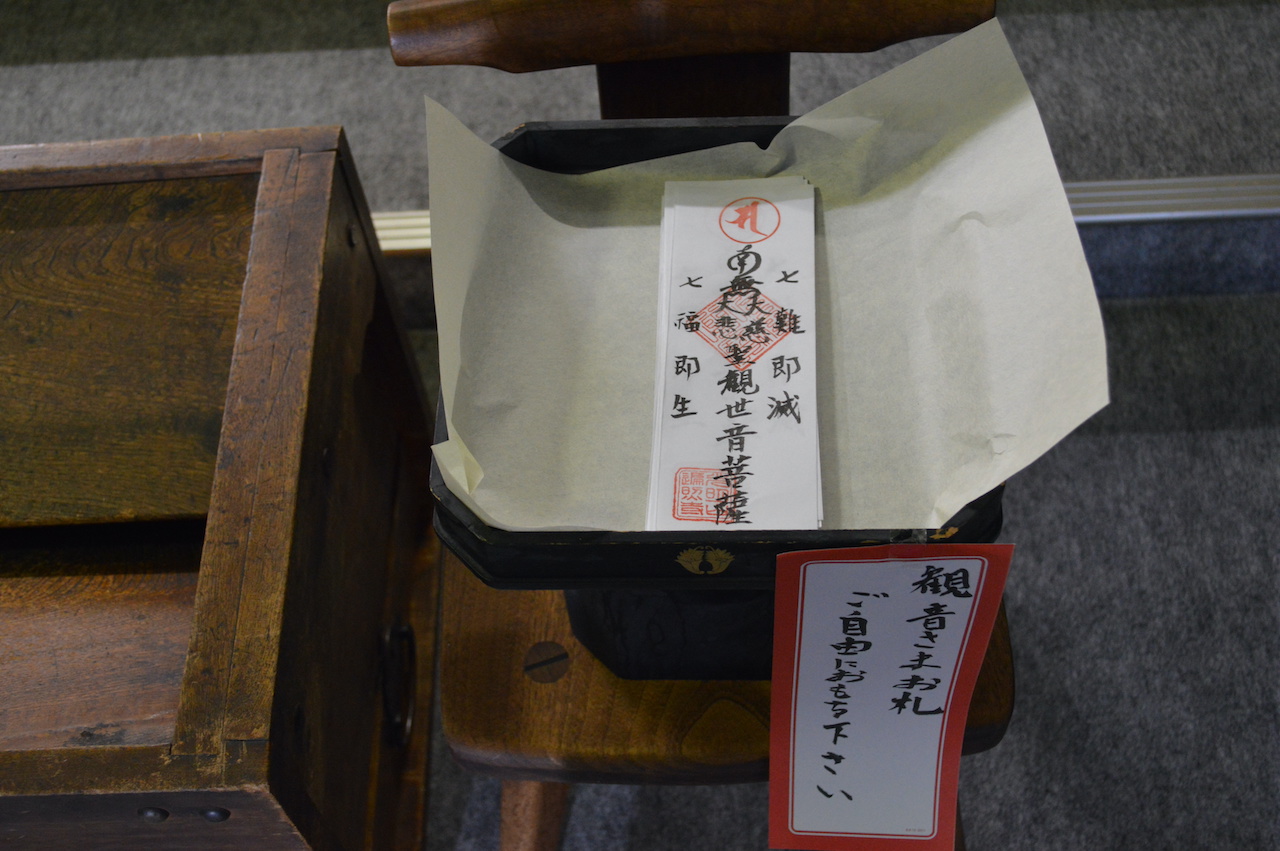 七難即滅
南無大慈大悲聖観世音菩薩
七福即生
観音さまお札
ご自由におもち下さい